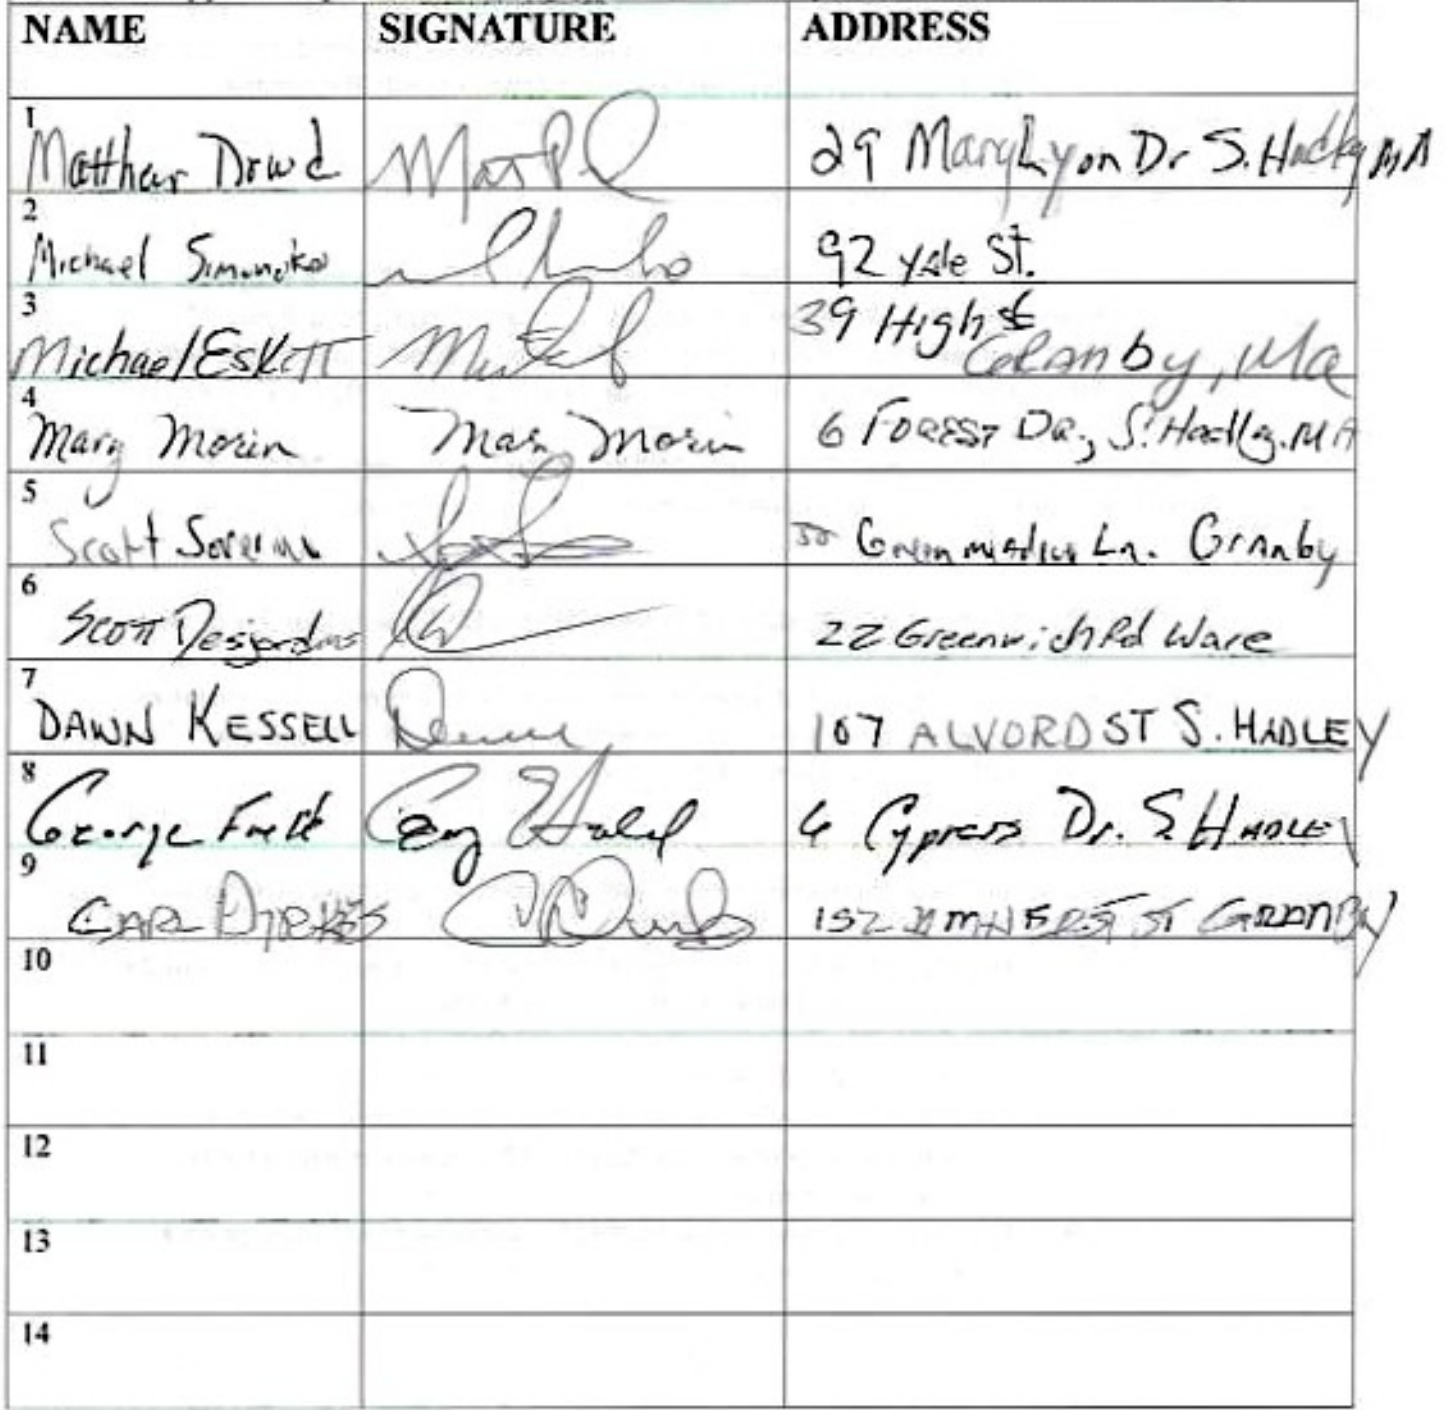 NAME SIGNATURE ADDRESS
1 Matthew Dowd 29 Mary Lyon Dr S. Hadley MA
2 Michael 92 Yale St.
3 Michael Eskett 39 High St
Granby, Ma
4 Mary Morin Mary Morin 6 Forest Dr., S. Hadley. MA
5 Scott Granby
6 Scott Desjardins 22 Greenwich Rd Ware
7 DAWN KESSELL 107 ALVORD ST S. HADLEY
8 George 6 Cypress Dr. S. HADLEY
9 CARL DIRKES 152 AMHERST ST GRANBY
10
11
12
13
14